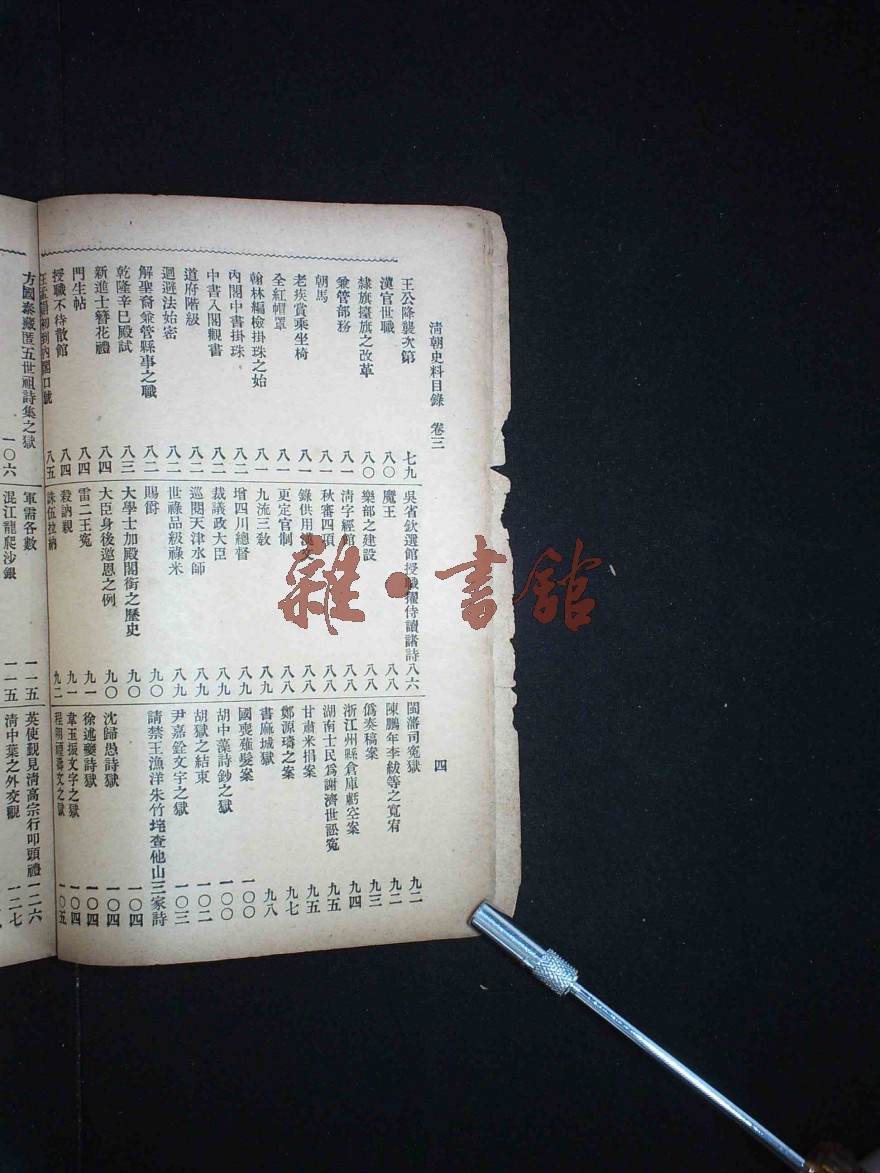 清朝史料目錄 卷三
四
王公降襲次第 七九
漢官世職 八〇
隸旗擡旗之改革 八〇
兼管部務 八一
朝馬 八一
老疾賞乘坐椅 八一
全紅帽罩 八一
翰林編檢掛珠之始 八一
內閣中書掛珠 八二
中書入閣觀書 八二
道府階級 八二
迴避法始密 八二
解聖裔兼管縣事之職 八二
乾隆辛巳殿試 八三
新進士簪花禮 八四
門生帖 八四
授職不待散館 八四
八五
吳省欽選館授職擢侍讀諸詩 八六
魔王 八八
樂部之建設 八八
清字經館 八八
秋審四項 八八
錄供用漢文 八八
更定官制 八八
九流三教 八九
增四川總督 八九
裁議政大臣 八九
巡閱天津水師 八九
世祿品級祿米 八九
賜爵 九〇
大學士加殿閣銜之歷史 九〇
大臣身後邀恩之例 九〇
雷二王冤 九一
殺訥親 九一
誅伍拉納 九二
閩藩司冤獄 九二
陳鵬年李紱等之寬宥 九二
僞奏稿案 九三
浙江州縣倉庫虧空案 九四
湖南士民爲謝濟世訟冤 九五
甘肅米捐案 九五
鄭源璹之案 九七
書麻城獄 九八
國喪薙髮案 一〇〇
胡中藻詩鈔之獄 一〇〇
胡獄之結束 一〇二
尹嘉銓文字之獄 一〇三
請禁王漁洋朱竹垞查他山三家詩 一〇四
沈歸愚詩獄 一〇四
徐述夔詩獄 一〇四
韋玉振文字之獄 一〇四
程明諲壽文之獄 一〇五
方國泰藏匿五世祖詩集之獄 一〇六
軍需各數 一一五
混江龍爬沙銀 一一五
英使覲見清高宗行叩頭禮 一二六
清中葉之外交觀 一二七
雜·書館